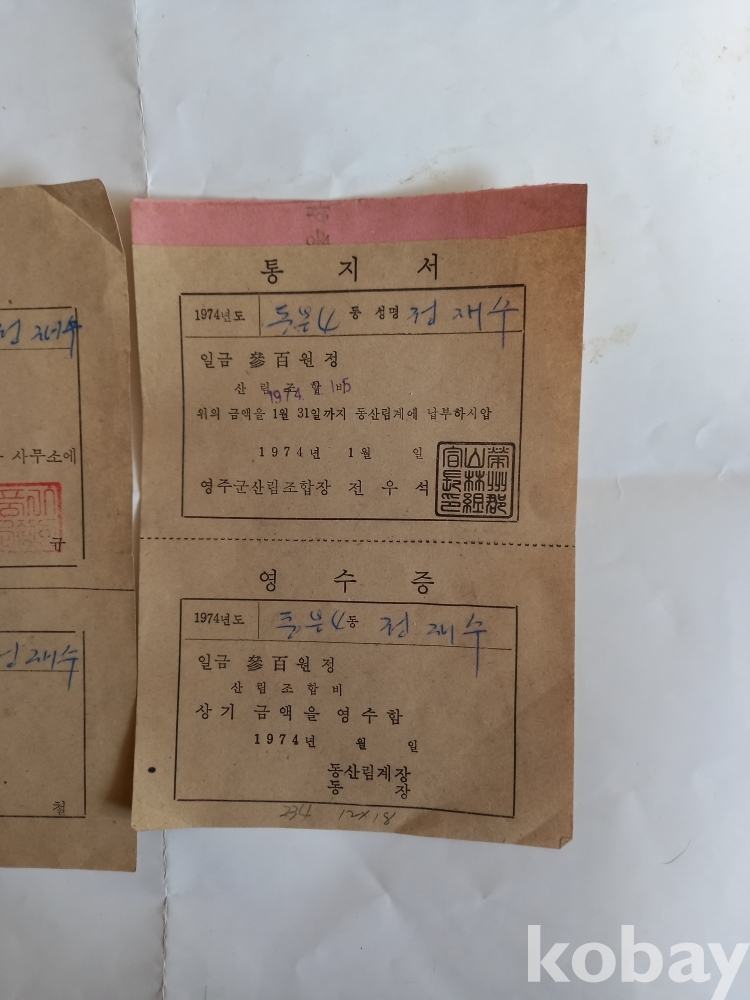 통 지 서
1974년도 동 성명 정 재 수
일금 參百원정
산 림 조 합 비
1974. 1 15
위의 금액을 1월 31일까지 동산림계에 납부하시압
1974년 1월 일
영주군산림조합장 전 우 석
榮州郡山林組
영 수 증
1974년도 동 정 재 수
일금 參百원정
산 림 조 합 비
상 기 금액을 영수함
1974년 월 일
동산림계장
동 장
12×18
재수
사무소에
규
재수
철
kobay